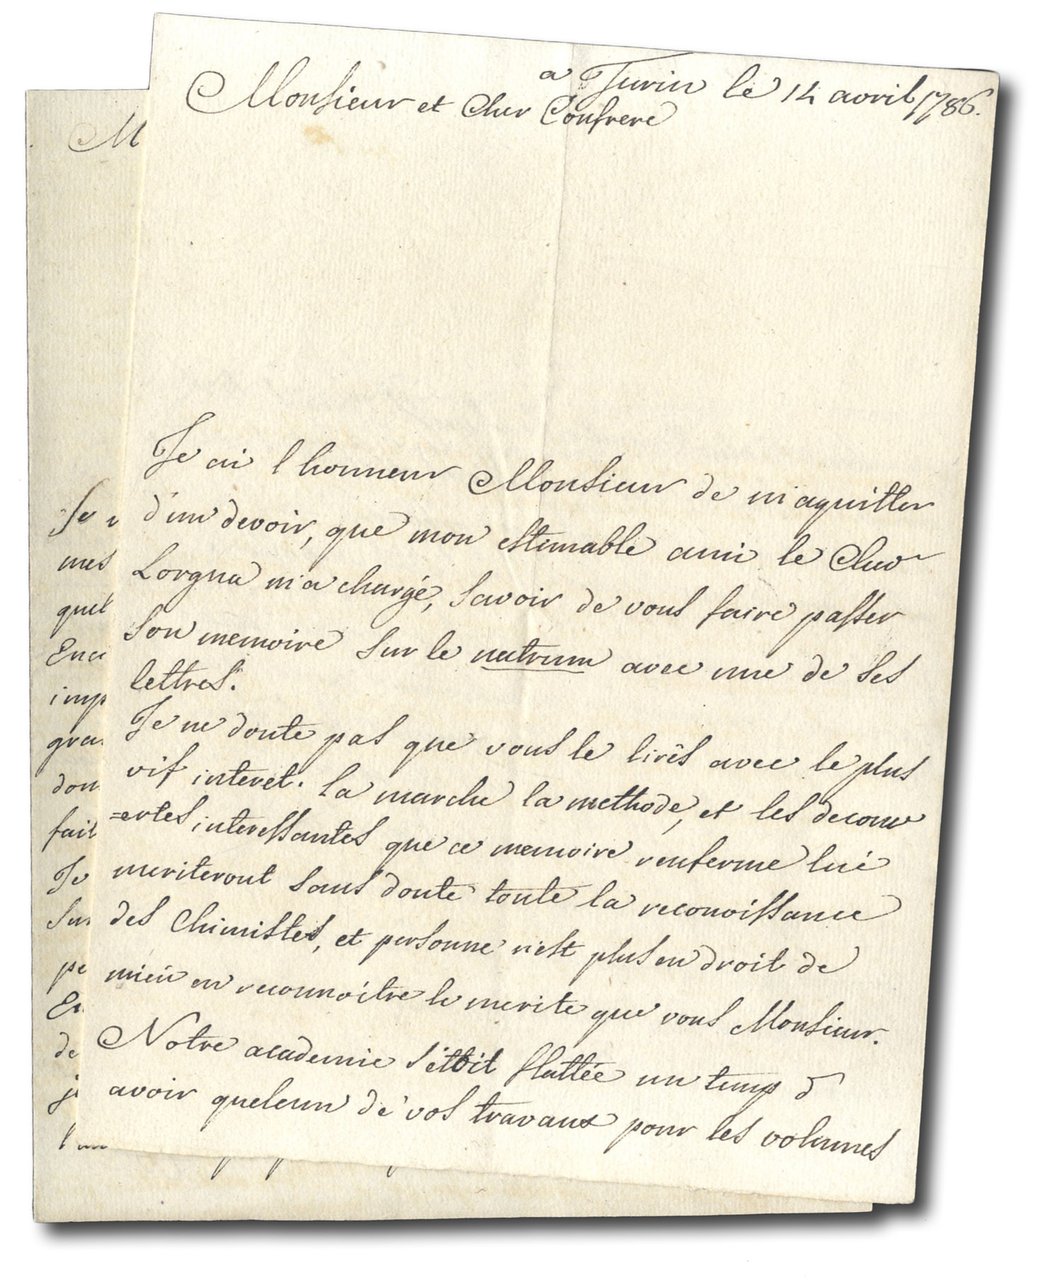 a Turin le 14 avril 1786.
Monsieur et cher Confrere
Je ai l honneur Monsieur de m'aquitter
d'un devoir, que mon estimable ami le Chev
Lorgna m'a chargé, savoir de vous faire passer
son memoire sur le natrum avec une de ses
lettres.
Je ne doute pas que vous le lirês avec le plus
vif interet. la marche la methode, et les decouv
=ertes interessantes que ce memoire renferme lui
meriteront sans doute toute la reconoissance
des Chimistes, et personne n'est plus en droit de
mieu en reconnoitre le merite que vous Monsieur.
Notre academie s'étoit flattée un temp d
avoir quelcun de vos travaux pour les volumes
M
Je
mes
quel
Enc
imp
gra
don
fait
Je
Sur
pe
En
de
j
l'